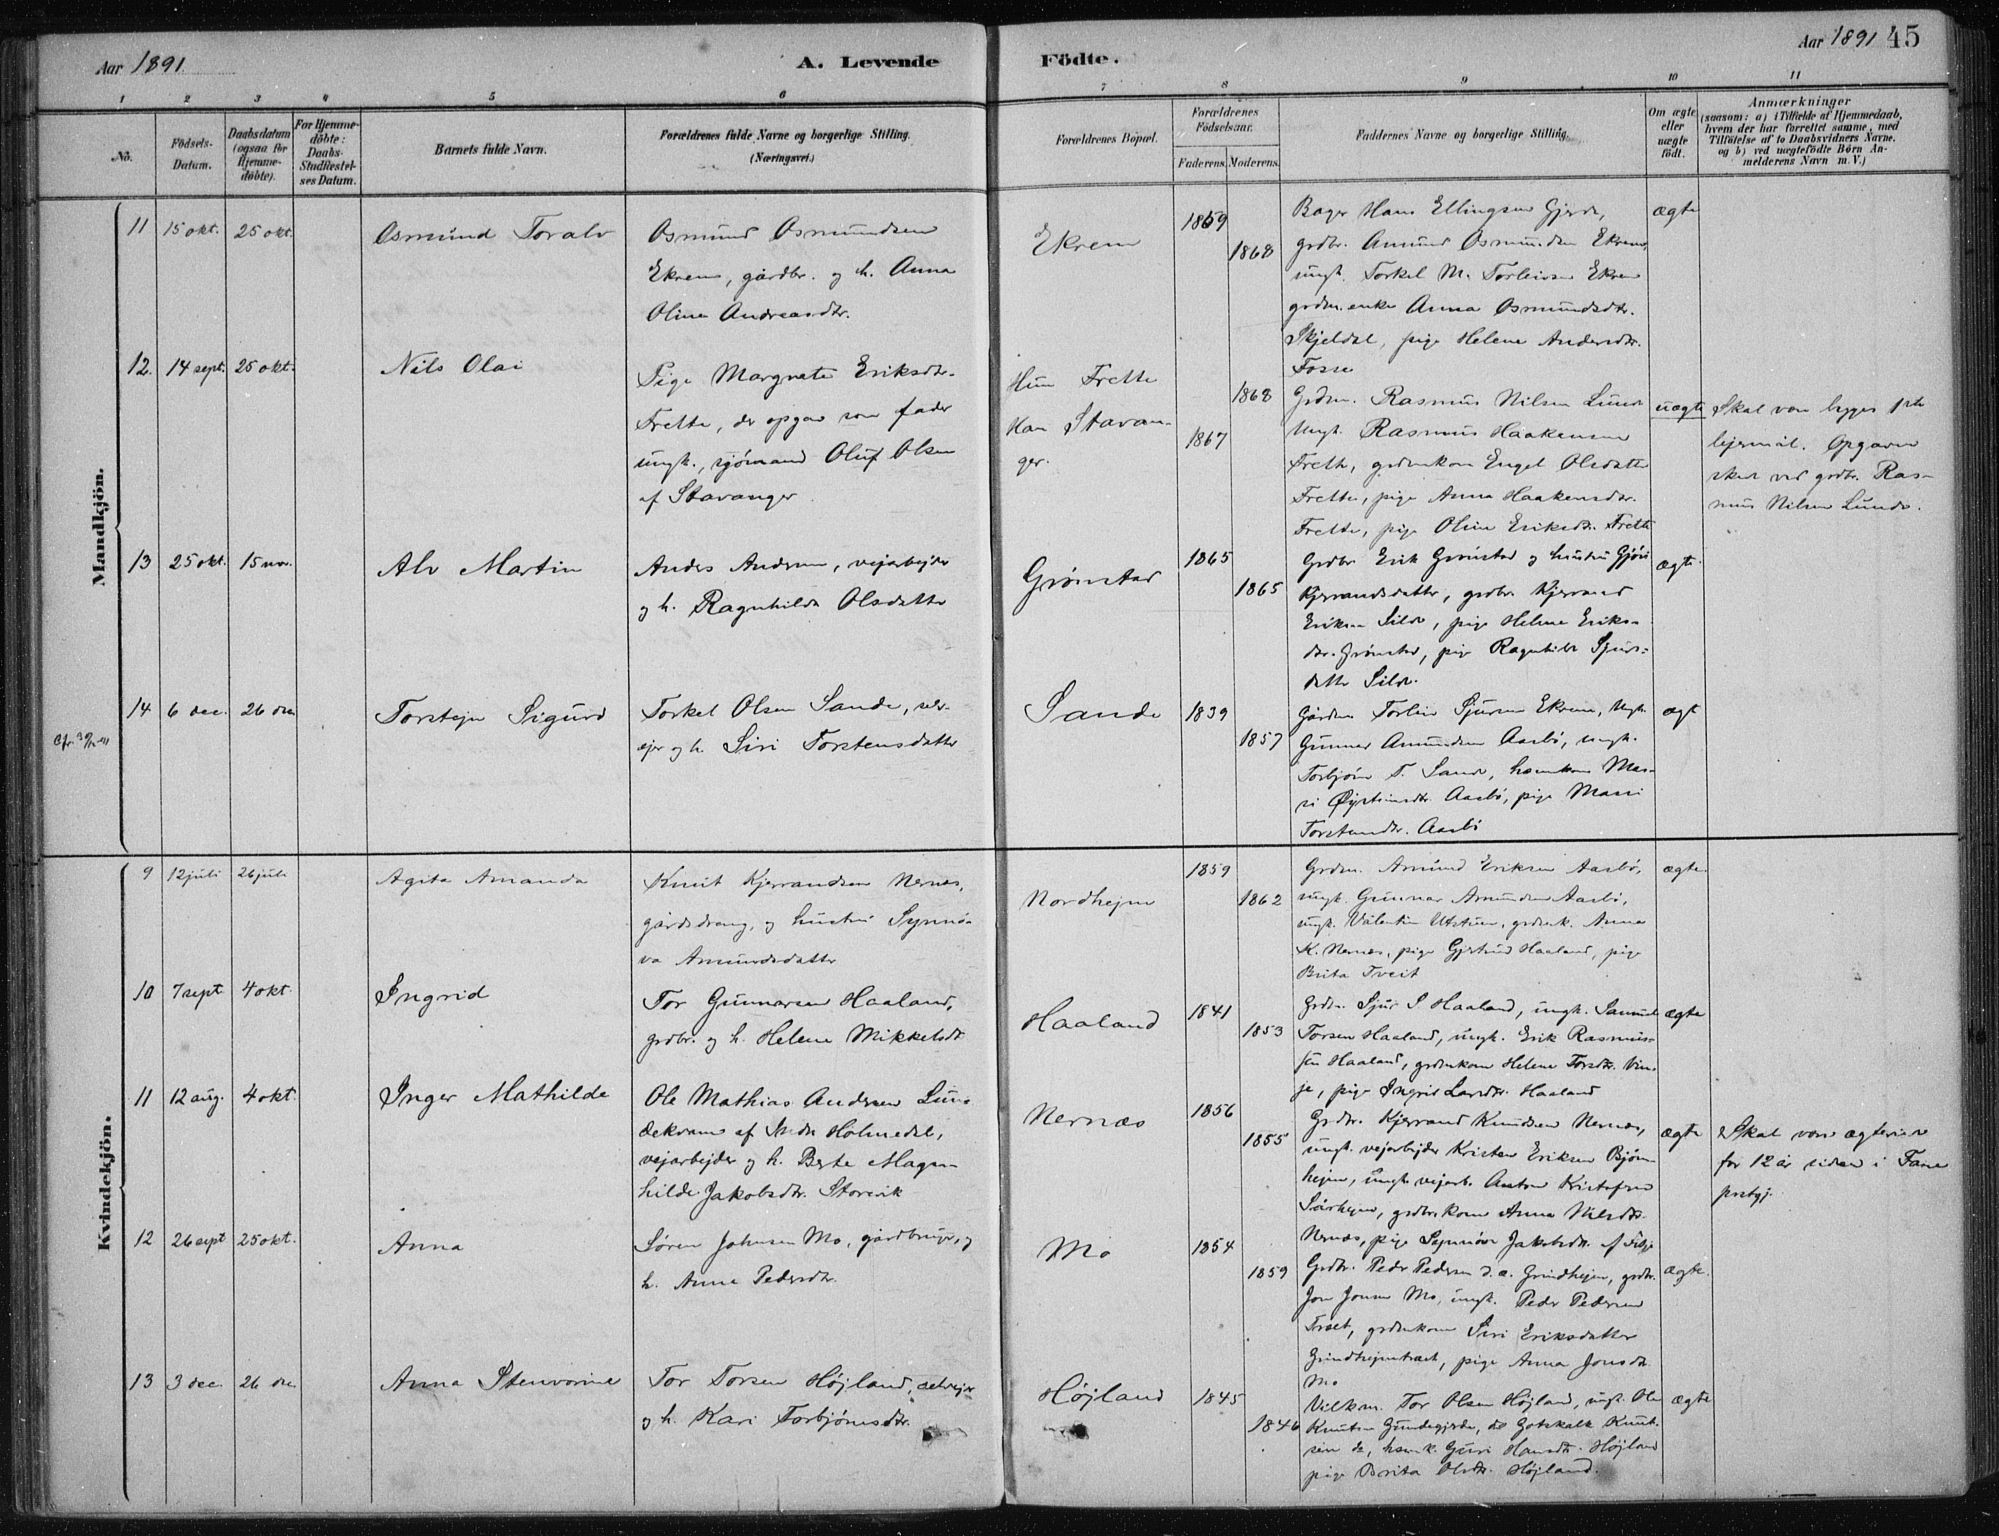 Aar 1891.
A. Levende Födte.
Aar 1891 45
1 2 3 4 5 6 7 8 9 10 11
No.
Födsels-Datum.
Daabsdatum (ogsaa for Hjemmedöbte).
For Hjemmedöbte: Daabs-Stadfæstelses Datum.
Barnets fulde Navn.
Forældrenes fulde Navne og borgerlige Stilling.
(Næringsvei.)
Forældrenes Böpæl.
Forældrenes Födselsaar.
Faderens. Moderens.
Faddernes Navne og borgerlige Stilling.
Om ægte eller uægte födt.
Anmærkninger
(saasom: a) i Tilfælde af Hjemmedaab,
hvem der har forrettet samme, med
Tilföielse af to Daabsvidners Navne,
og b) ved uægtefödte Börn An-
melderens Navn m. V.)
Mandkjön.
11 15 okt. 25 okt.
Osmund Toralv
Osmund Osmundsen
Ekrem, gårdbr. og h. Anna
Oline Andreasdtr.
Ekrem
1859
1868
Bager Hans Ellingsen Gjerde,
grdbr. Amund Osmundsen Ekrem,
ungk. Torkel M. Torleivsen Ekrem
grdm.enke Anna Osmundsdtr.
Skjeldal, pige Helene Andersdtr.
Fosse
ægte
12. 14 sept. 25 okt.
Nils Olai
Pige Margrete Eriksdtr.
Frette, der opgav som fader
ungk., sjømand Oluf Olsen
af Stavanger
Hun Frette
Han Stavan-
ger.
1868
1867
Grdm. Rasmus Nilsen Lunde
Ungk. Rasmus Haakensen
Frette, grdmkone Engel Olsdatter
Frette, pige Anna Haakensdtr.
Frette, pige Oline Eriksdtr. Frette
uægte
Skal være begges 1ste
lejermål. Opgaven
skede ved grdbr. Ras-
mus Nilsen Lunde.
13 25 okt. 15 nov.
Alv Martin
Anders Andersen, vejarbejder
og h. Ragnhilda Olsdatter
Grønstad
1865
1865
Grdbr. Erik Grønstad og hustru Gjøri
Kjerrandsdatter, grdbr. Kjerrand
Eriksen Silde, pige Helene Eriks-
dtr. Grønstad, pige Ragnhilda Sjurs-
datter Silde.
ægte.
14 6 dec. 26 dec
Torstejn Sigurd
Torkel Olsen Sande, selv-
ejer og h. Siri Torstensdatter
Sande
1839
1857
Gårdm. Torleiv Sjursen Ekrem, Ungk.
Gunnar Amundsen Aarbö, ungk.
Torbjörn T. Sande, husmkone Mar-
si Øysteinsdtr. Aarbö, pige Marsi
Torstensdtr. Aarbö
ægt
Kvindekjön.
9 12 juli 26 juli
Agita Amanda
Knut Kjerrandsen Nernæs,
gårdsdreng, og hustru Synnö-
va Amundsdatter
Nordhejm
1859
1862
Grdm. Amund Eriksen Aarbö,
ungk. Gunnar Amundsen Aarbö,
ungk. Valentin Utstuen, grdmk. Anna
K. Nernæs, pige Gjertrud Haaland, pige
Brita Tveit
ægte.
10 7 sept 4 okt.
Ingrid
Tor Gunnarsen Haaland,
grdbr. og h. Helene Mikkelsdtr
Haaland
1841
1853
Grdm. Sjur S Haaland, ungk. Samuel
Torsen Haaland, ungk. Erik Rasmus-
sen Haaland, grdmkone Helene Torsdtr. Vin-
je, pige Ingrid Larsdtr. Haaland
ægte
11 12 aug. 4 okt.
Inger Mathilde
Ole Mathias Andersen Lun-
dekvam af Indre Holmedal,
vejarbejder og h. Berte Magn-
hilde Jakobsdtr. Storevik
Nernæs
1856
1855
Grdbr. Kjerrand Knudsen Nernæs,
ungk. vejarbejder Kristen Eriksen Björn-
hejm, ungk. vejarb. Anton Kristofersen
Sörhejm, grdbrkone Anna Nilsdtr.
Nernæs, pige Synnöve Jakobsdtr. af
ægte
Skal være ægteviet
for 12 år siden i Fane
prstgj.
12 26 sept 25 okt.
Anna
Søren Johnsen Mo, gårdbruger, og
h. Anne Pedersdtr.
Mo
1854
1859
Grdbr. Peder Pedersen d.æ. Grindhejm, grdbr.
Jon Jonsen Mo, ungk. Peder Pedersen
Torset, grdmkone Siri Eriksdatter
Grindhejmstræet, pige Anna Jonsdtr.
Mo
ægte.
13 3 dec. 26 dec
Anna Stenvorine
Tor Torsen Höjland, selvejer
og h. Kari Torbjörnsdtr.
Höjland
1845
1846
Vilkm. Tor Olsen Höjland, ungk. Ole
Knutsen Gundegjerde, do Gotskalk Knut-
sen do, husmk. Guri Hansdtr. Höjland
pige Brita Olsdtr. Höjland.
ægte